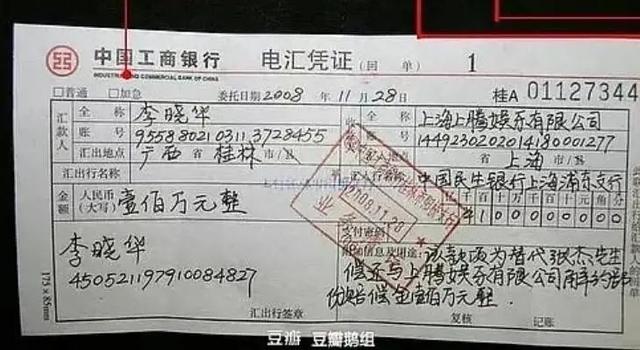 中国工商银行 电汇凭证(回单) 1
INDUSTRIAL AND COMMERCIAL BANK OF CHINA
□普通 □加急 委托日期 2008 年 11 月 28 日 桂A 01127344
汇款人 全称 李晓华 全称 上海上腾娱乐有限公司
账号 9558802103113728455 账号 1449230202014180001277
汇出地点 广西 省 桂林 市/县 省 上海 市/县
汇出行名称 汇入行名称 中国民生银行上海浦东支行
金额 人民币(大写) 壹佰万元整 千百十万千百十元角分
2008.11.28
业务
支付密码
李晓华 附加信息及用途: 该款项为替代张杰先生
450521197910084827 偿还与上腾娱乐有限公司解约部
份赔偿金壹佰万元整.
汇出行签章 复核 记账
175×85mm
豆瓣 豆瓣鹅组